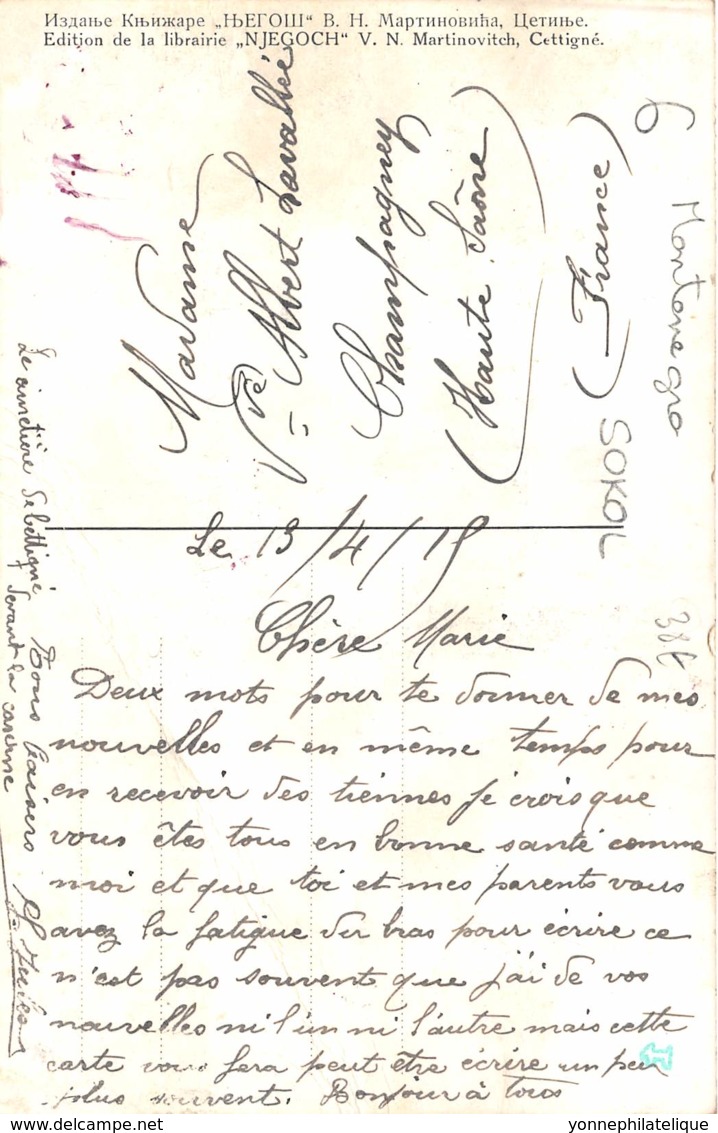 Издање Књижаре „ЊЕГОШ“ В. Н. Мартиновића, Цетиње.
Edition de la librairie „NJEGOCH“ V. N. Martinovitch, Cettigné.
Madame
Vve Albert Lavallée
Champagney
(Haute Saône)
(France)
6
Montenegro
SOKOL
Le 13/4/19
Chère Marie
Deux mots pour te donner de mes
nouvelles et en même temps pour
en recevoir des tiennes je crois que
vous êtes tous en bonne santé comme
moi et que toi et mes parents vous
avez la fatigue du bras pour écrire ce
n'est pas souvent que j'ai de vos
nouvelles ni l'un ni l'autre mais cette
carte vous fera peut être écrire un peu
plus souvent. Bonjour à tous
Bons baisers
Le cimetière de Cettigné
devant la caserne
yonnephilatelique